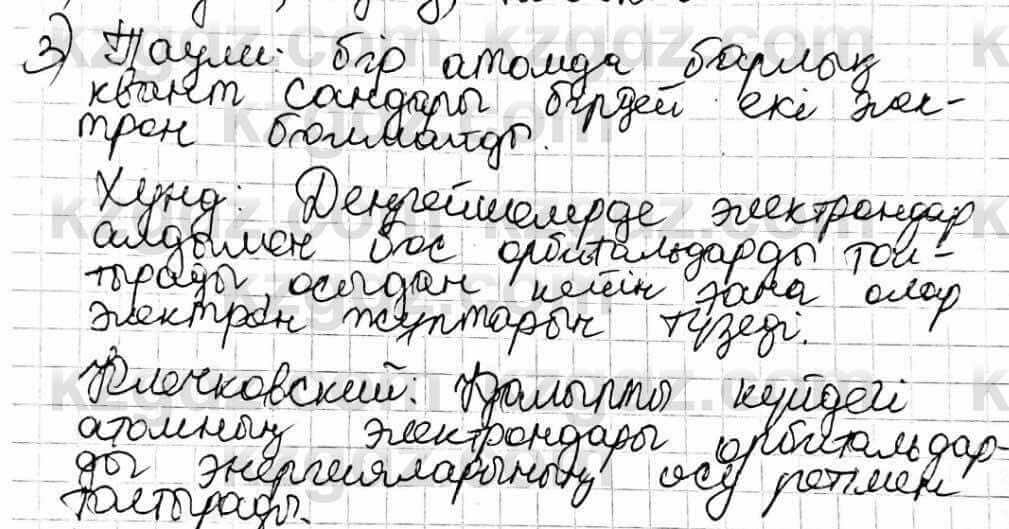 3) Паули: бір атомда барлық
квант сандары бірдей екі элек-
трон болмайды.
Хунд: Деңгейшелерде электрондар
алдымен бос орбитальдарды тол-
тырады, осыдан кейін ғана олар
электрон жұптарын түзеді.
Клечковский: Қалыпты күйдегі
атомның электрондары орбитальдар-
ды энергияларының өсу ретімен
толтырады.
kzgdz.com